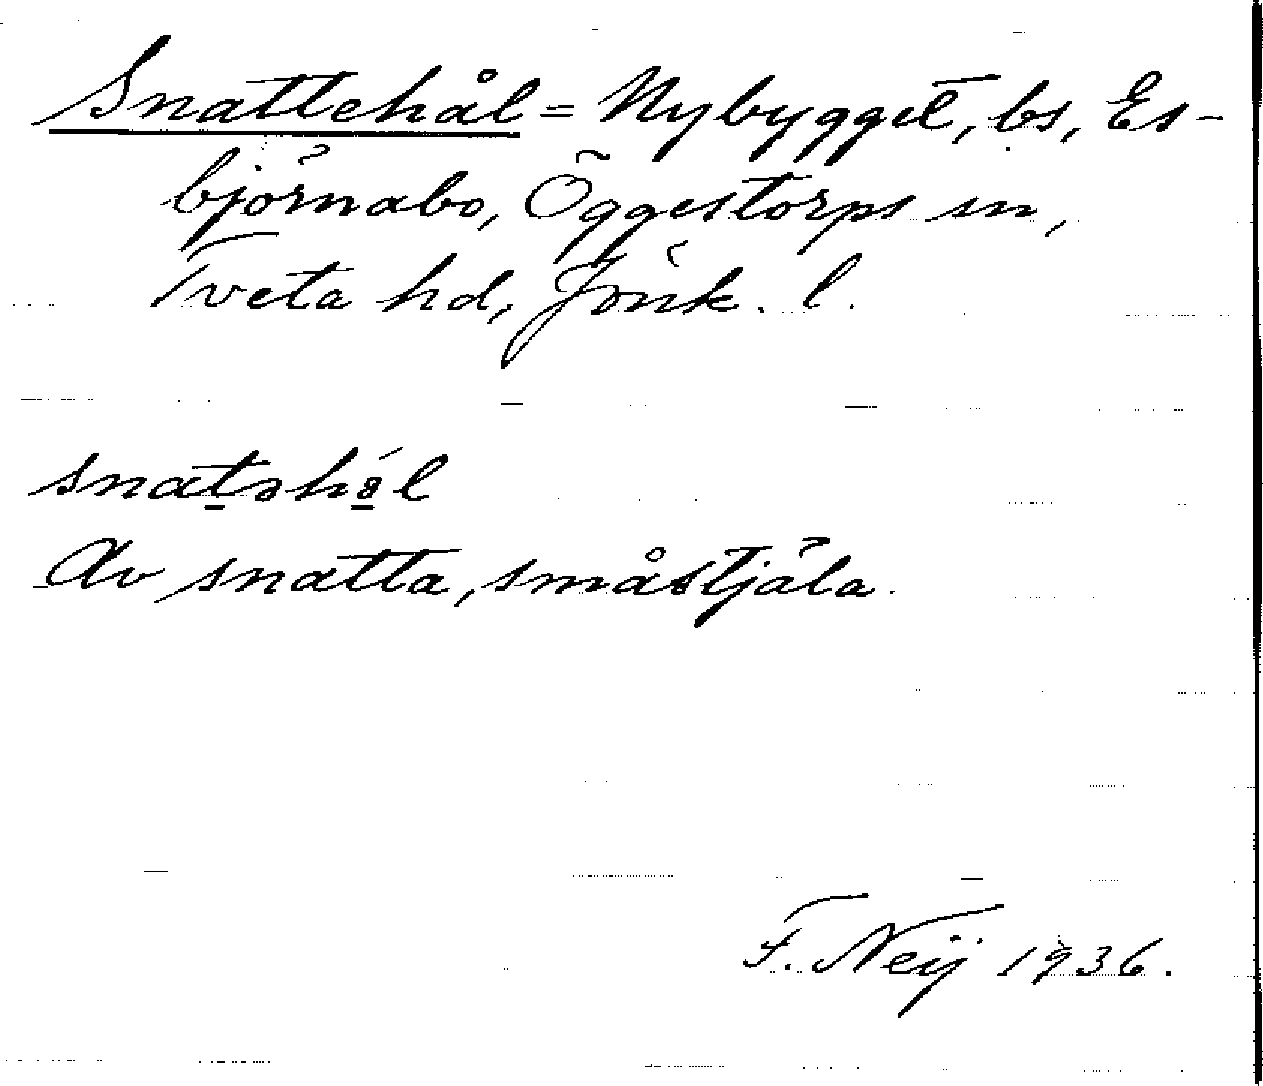 Snattehål = Nybygget, bs, Es-
björnabo, Öggestorps sn,
Tveta hd, Jönk. l.
snat̲əhə̲́l
Av snatta, småstjäla.
F. Neij 1936.